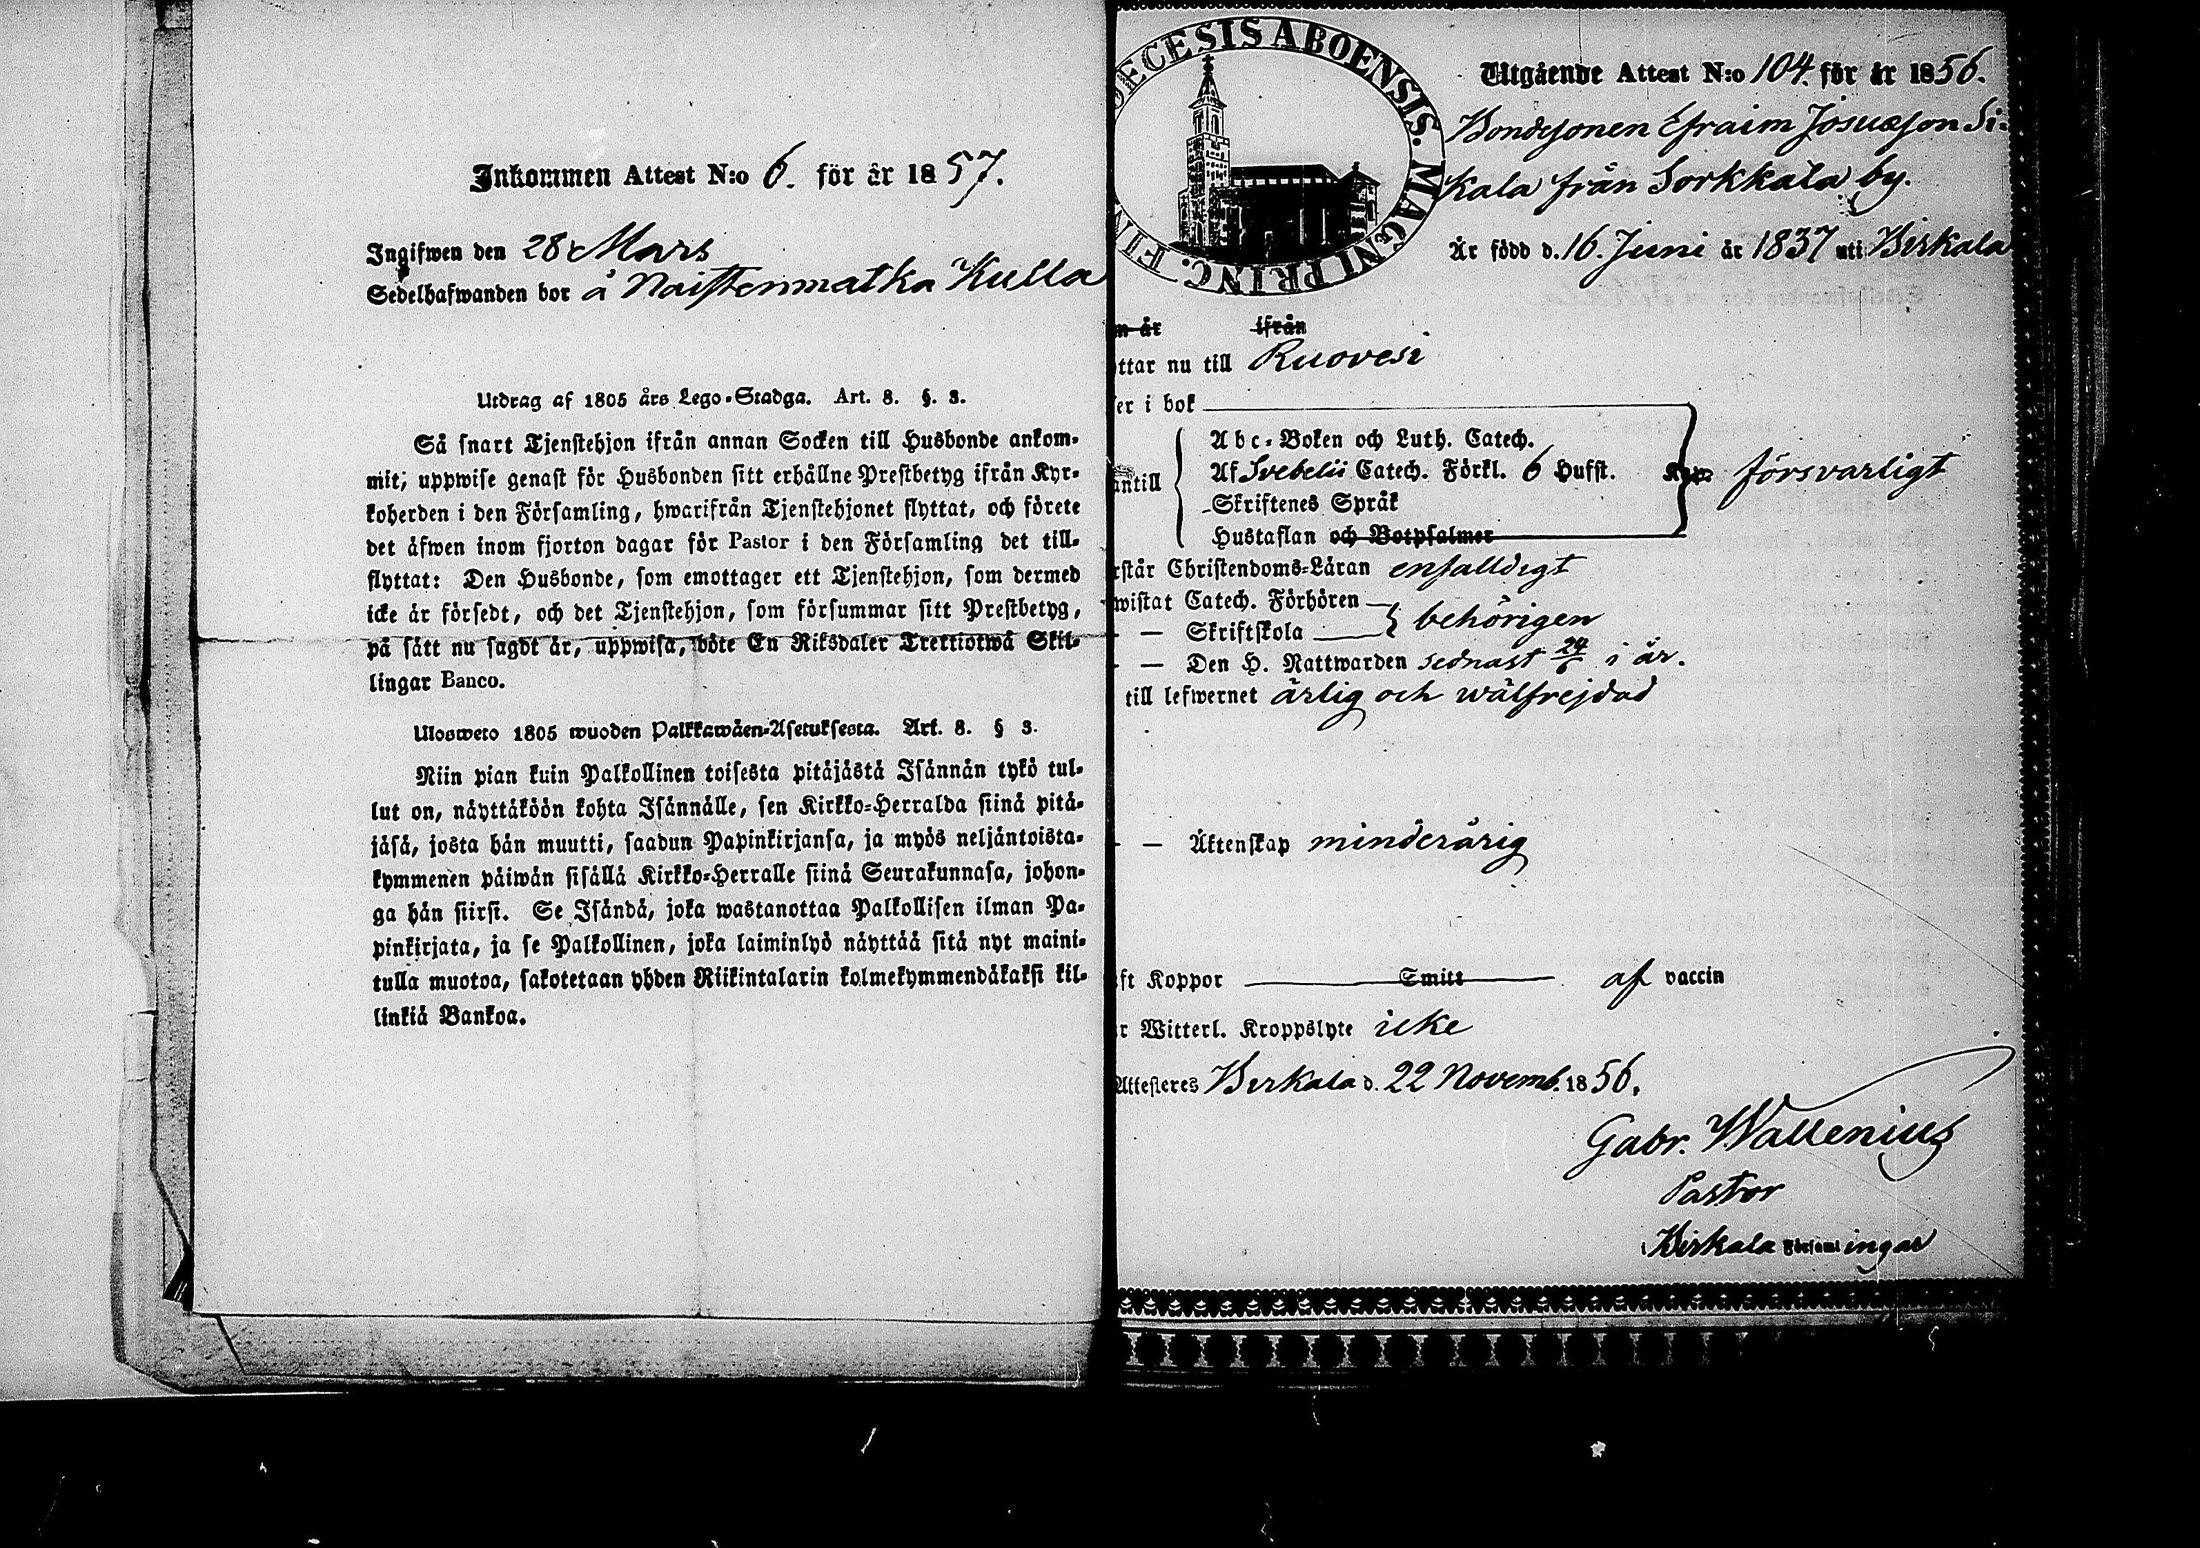 Inkommen Attest N:o 6. för år 1857.
Ingifwen den 28 Mars
Sedelhafwanden bor å Naistenmatka Kulla
Utdrag af 1805 års Lego-Stadga. Art. 8. §. 3.
Så snart Tjenstehjon ifrån annan Socken till Husbonde ankom-
mit, uppwise genast för Husbonden sitt erhållne Prestbetyg ifrån Kyr-
koherden i den Församling, hwarifrån Tjenstehjonet flyttat, och förete
det äfwen inom fjorton dagar för Pastor i den Församling det till-
flyttat: Den Husbonde, som emottager ett Tjenstehjon, som dermed
icke är försedt, och det Tjenstehjon, som försummar sitt Prestbetyg,
på sätt nu sagdt är, uppwisa, böte En Riksdaler Trettiotwå Skil-
lingar Banco.
Ulosweto 1805 wuoden Palkkawäen-Asetuksesta. Art. 8. § 3.
Niin pian kuin Palkollinen toisesta pitäjästä Isännän tykö tul-
lut on, näyttäköön kohta Isännälle, sen Kirkko-Herralda siinä pitä-
jäsä, josta hän muutti, saadun Papinkirjansa, ja myös neljäntoista-
kymmenen päiwän sisällä Kirkko-Herralle siinä Seurakunnasa, johon-
ga hän siirsi. Se Isändä, joka wastanottaa Palkollisen ilman Pa-
pinkirjata, ja se Palkollinen, joka laiminlyö näyttää sitä nyt maini-
tulla muotoa, sakotetaan yhden Riikintalarin kolmekymmendäkaksi kil-
linkiä Bankoa.
ŒCESIS ABOENSIS. MAGNI PRINC. FIN
Utgående Attest N:o 104. för år 1856.
Bondesonen Efraim Josuæson Si-
kala från Sorkkala by.
Är född d. 16. Juni år 1837 uti Birkala
n år ifrån
ttar nu till Ruovesi
er i bok
Abc-Boken och Luth. Catech.
Af Svebelii Catech. Förkl. 6 Hufst.
försvarligt
antill
Skriftenes Språk
Hustaflan och Botpsalmer
rstår Christendoms-Läran enfalldigt
wistat Catech. Förhören
behörigen
— Skriftskola
— Den H. Nattwarden sednast 24/6 i år.
till lefwernet ärlig och wälfrejdad
— Äktenskap minderårig
ft Koppor Smitt af vaccin
r Witterl. Kroppslyte icke
Attesteres Birkala d. 22 Novemb. 1856.
Gabr. Wallenius
Pastor
i Birkala Församlingar